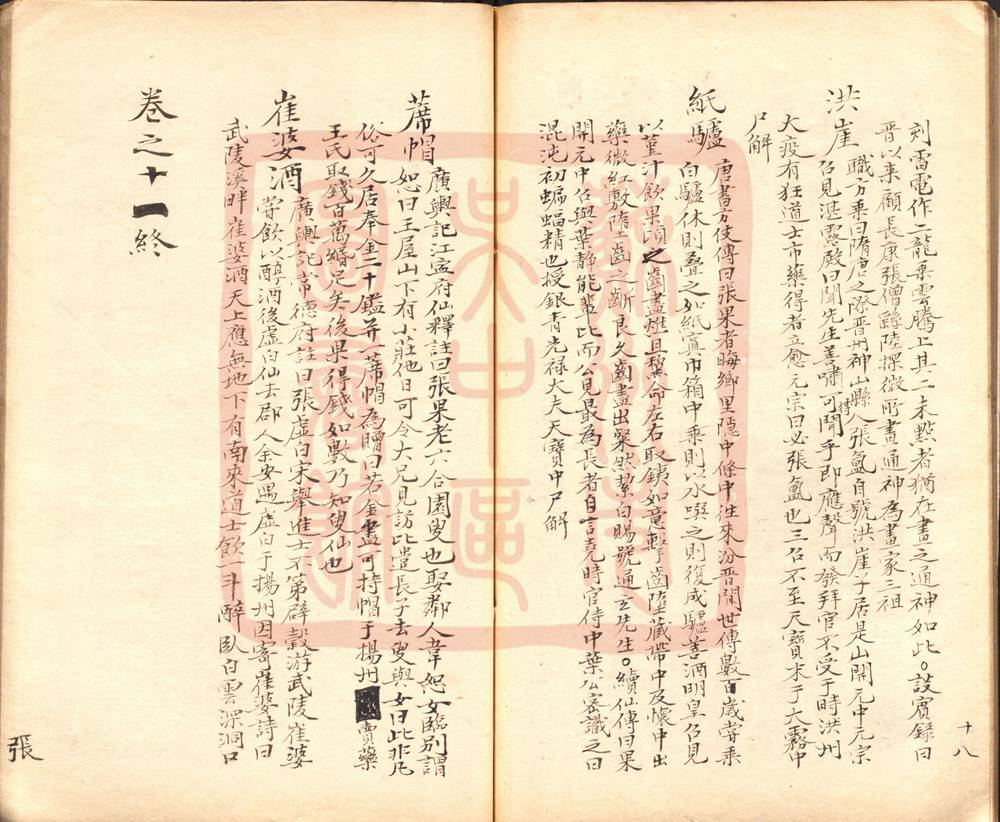 十八
刻雷電作二龍乘雲騰上其二未點者猶在畫之通神如此。設賓錄曰
晉以來顧長康張僧繇陸探微所畫通神為畫家三祖
洪崖 職方乘曰隋唐之際晉州神山縣人張氳自號洪崖子居是山開元中元宗
召見湛露殿曰聞先生善嘯可得聞乎即應聲而發拜官不受于時洪州
大疫有狂道士市藥得者立愈元宗曰必張氳也三召不至天寶末于大霧中
尸解
紙驢 唐書方伎傳曰張果者晦鄉里隱中條中往來汾晉間世傳數百歲嘗乘
白驢休則疊之如紙寘巾箱中乘則以水噀之則復成驢善酒明皇召見
以堇汁飲果頃之齒盡燋且黧命左右取鐵如意擊齒墮藏帶中及懷中出
藥微紅敷墮齒之齗良久齒盡出粲然潔白賜號通玄先生。續仙傳曰果
開元中召與葉靜能輩比而公見最為長者自言堯時官侍中葉公密識之曰
混沌初蝙蝠精也授銀青光祿大夫天寶中尸解
蓆帽 廣輿記江寍府仙釋註曰張果老六合園叟也娶鄰人韋恕女臨別謂
恕曰王屋山下有小莊他日可令大兄見訪比遣長子去叟與女曰此非凡
俗可久居奉金二十鎰并一蓆帽為贈曰若金盡可持帽于揚州賣藥
王氏取錢百萬緡足矣後果得錢如數乃知叟仙也
崔婆酒 廣輿記常德府註曰張虛白宋舉進士不第辟穀游武陵崔婆
嘗飲以醇酒後虛白仙去郡人余安遇虛白于揚州因寄崔婆詩曰
武陵溪畔崔婆酒天上應無地下有南來道士飲一斗醉臥白雲深洞口
卷之十一終
張